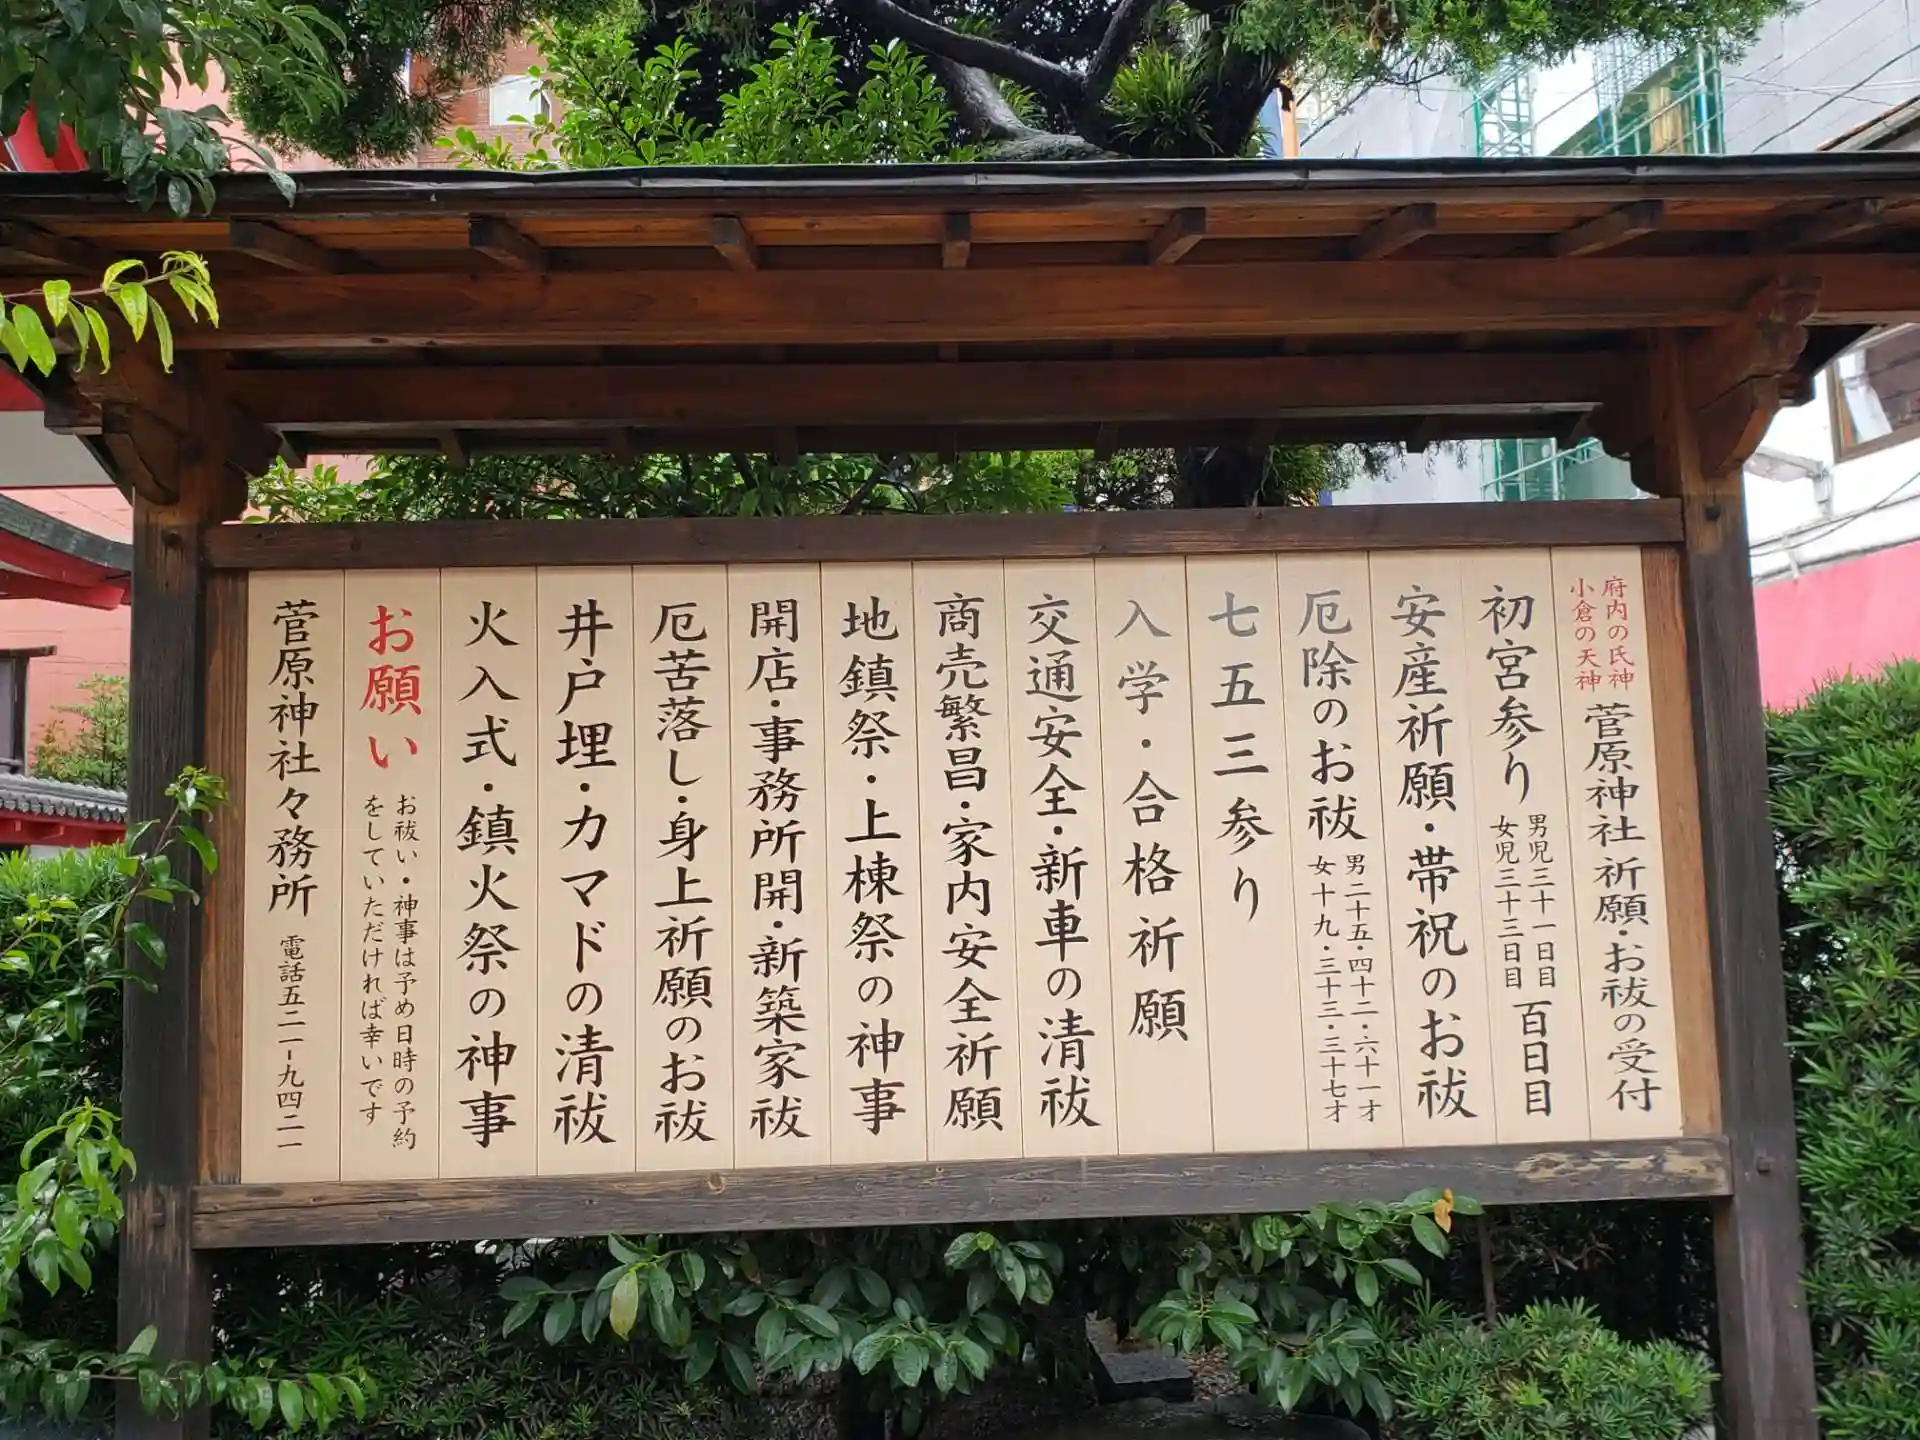 府内の氏神
小倉の天神
菅原神社 祈願・お祓の受付
初宮参り 男児三十一日目
女児三十三日目
百日目
安産祈願・帯祝のお祓
厄除のお祓 男二十五・四十二・六十一才
女十九・三十三・三十七才
七五三参り
入学・合格祈願
交通安全・新車の清祓
商売繁昌・家内安全祈願
地鎮祭・上棟祭の神事
開店・事務所開・新築家祓
厄苦落し・身上祈願のお祓
井戸埋・カマドの清祓
火入式・鎮火祭の神事
お願い お祓い・神事は予め日時の予約
をしていただければ幸いです
菅原神社々務所 電話五二一-九四二一